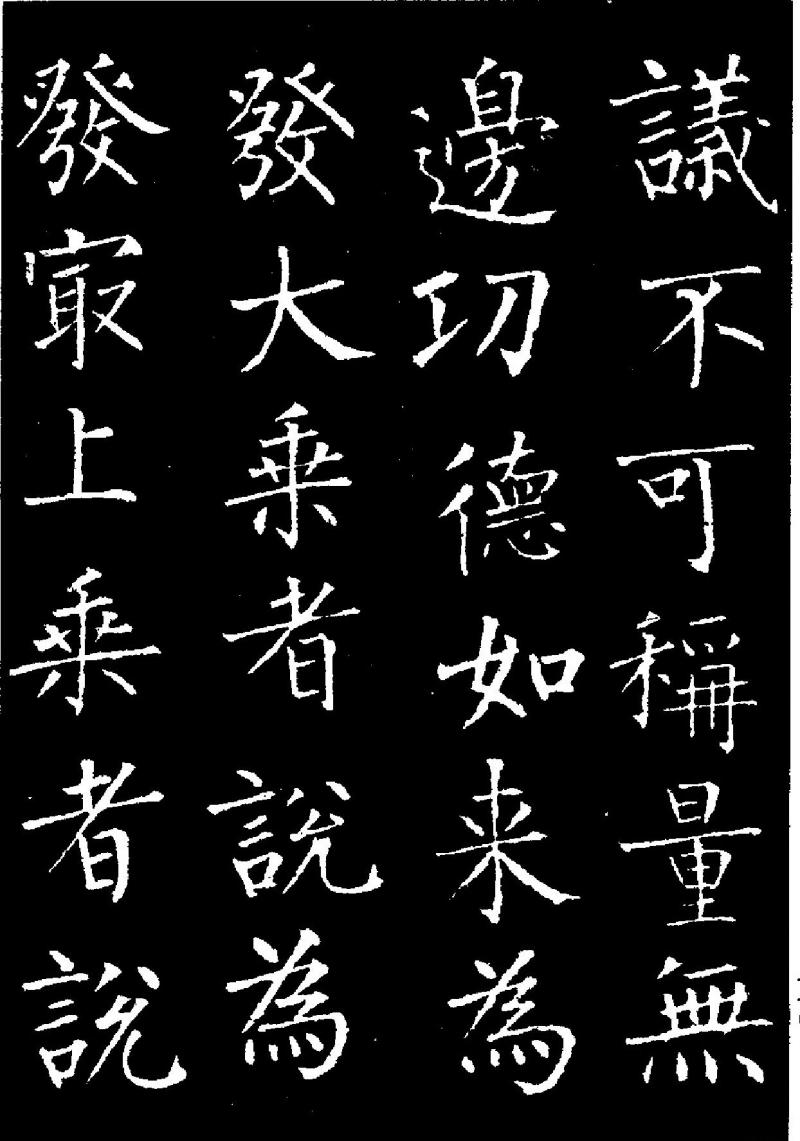 議不可稱量無
邊功德如来為
發大乗者說為
發冣上乗者說